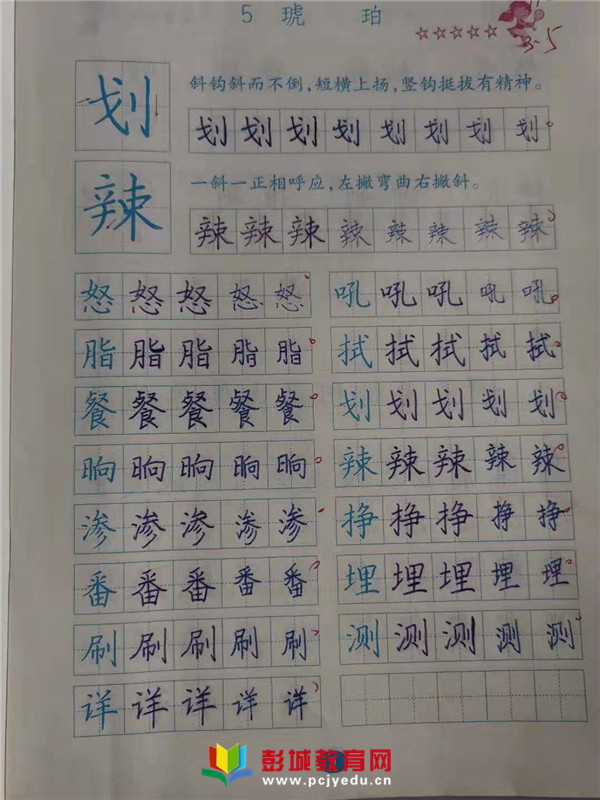 5 琥 珀
3.5
划 斜钩斜而不倒，短横上扬，竖钩挺拔有精神。
划 划 划 划 划 划 划 划
辣 一斜一正相呼应，左撇弯曲右撇斜。
辣 辣 辣 辣 辣 辣 辣 辣
怒 怒 怒 怒 怒 吼 吼 吼 吼 吼
脂 脂 脂 脂 脂 拭 拭 拭 拭 拭
餐 餐 餐 餐 餐 划 划 划 划 划
晌 晌 晌 晌 晌 辣 辣 辣 辣 辣
渗 渗 渗 渗 渗 挣 挣 挣 挣 挣
番 番 番 番 番 埋 埋 埋 埋 埋
刷 刷 刷 刷 刷 测 测 测 测 测
详 详 详 详 详
彭城教育网
www.pcjyedu.cn